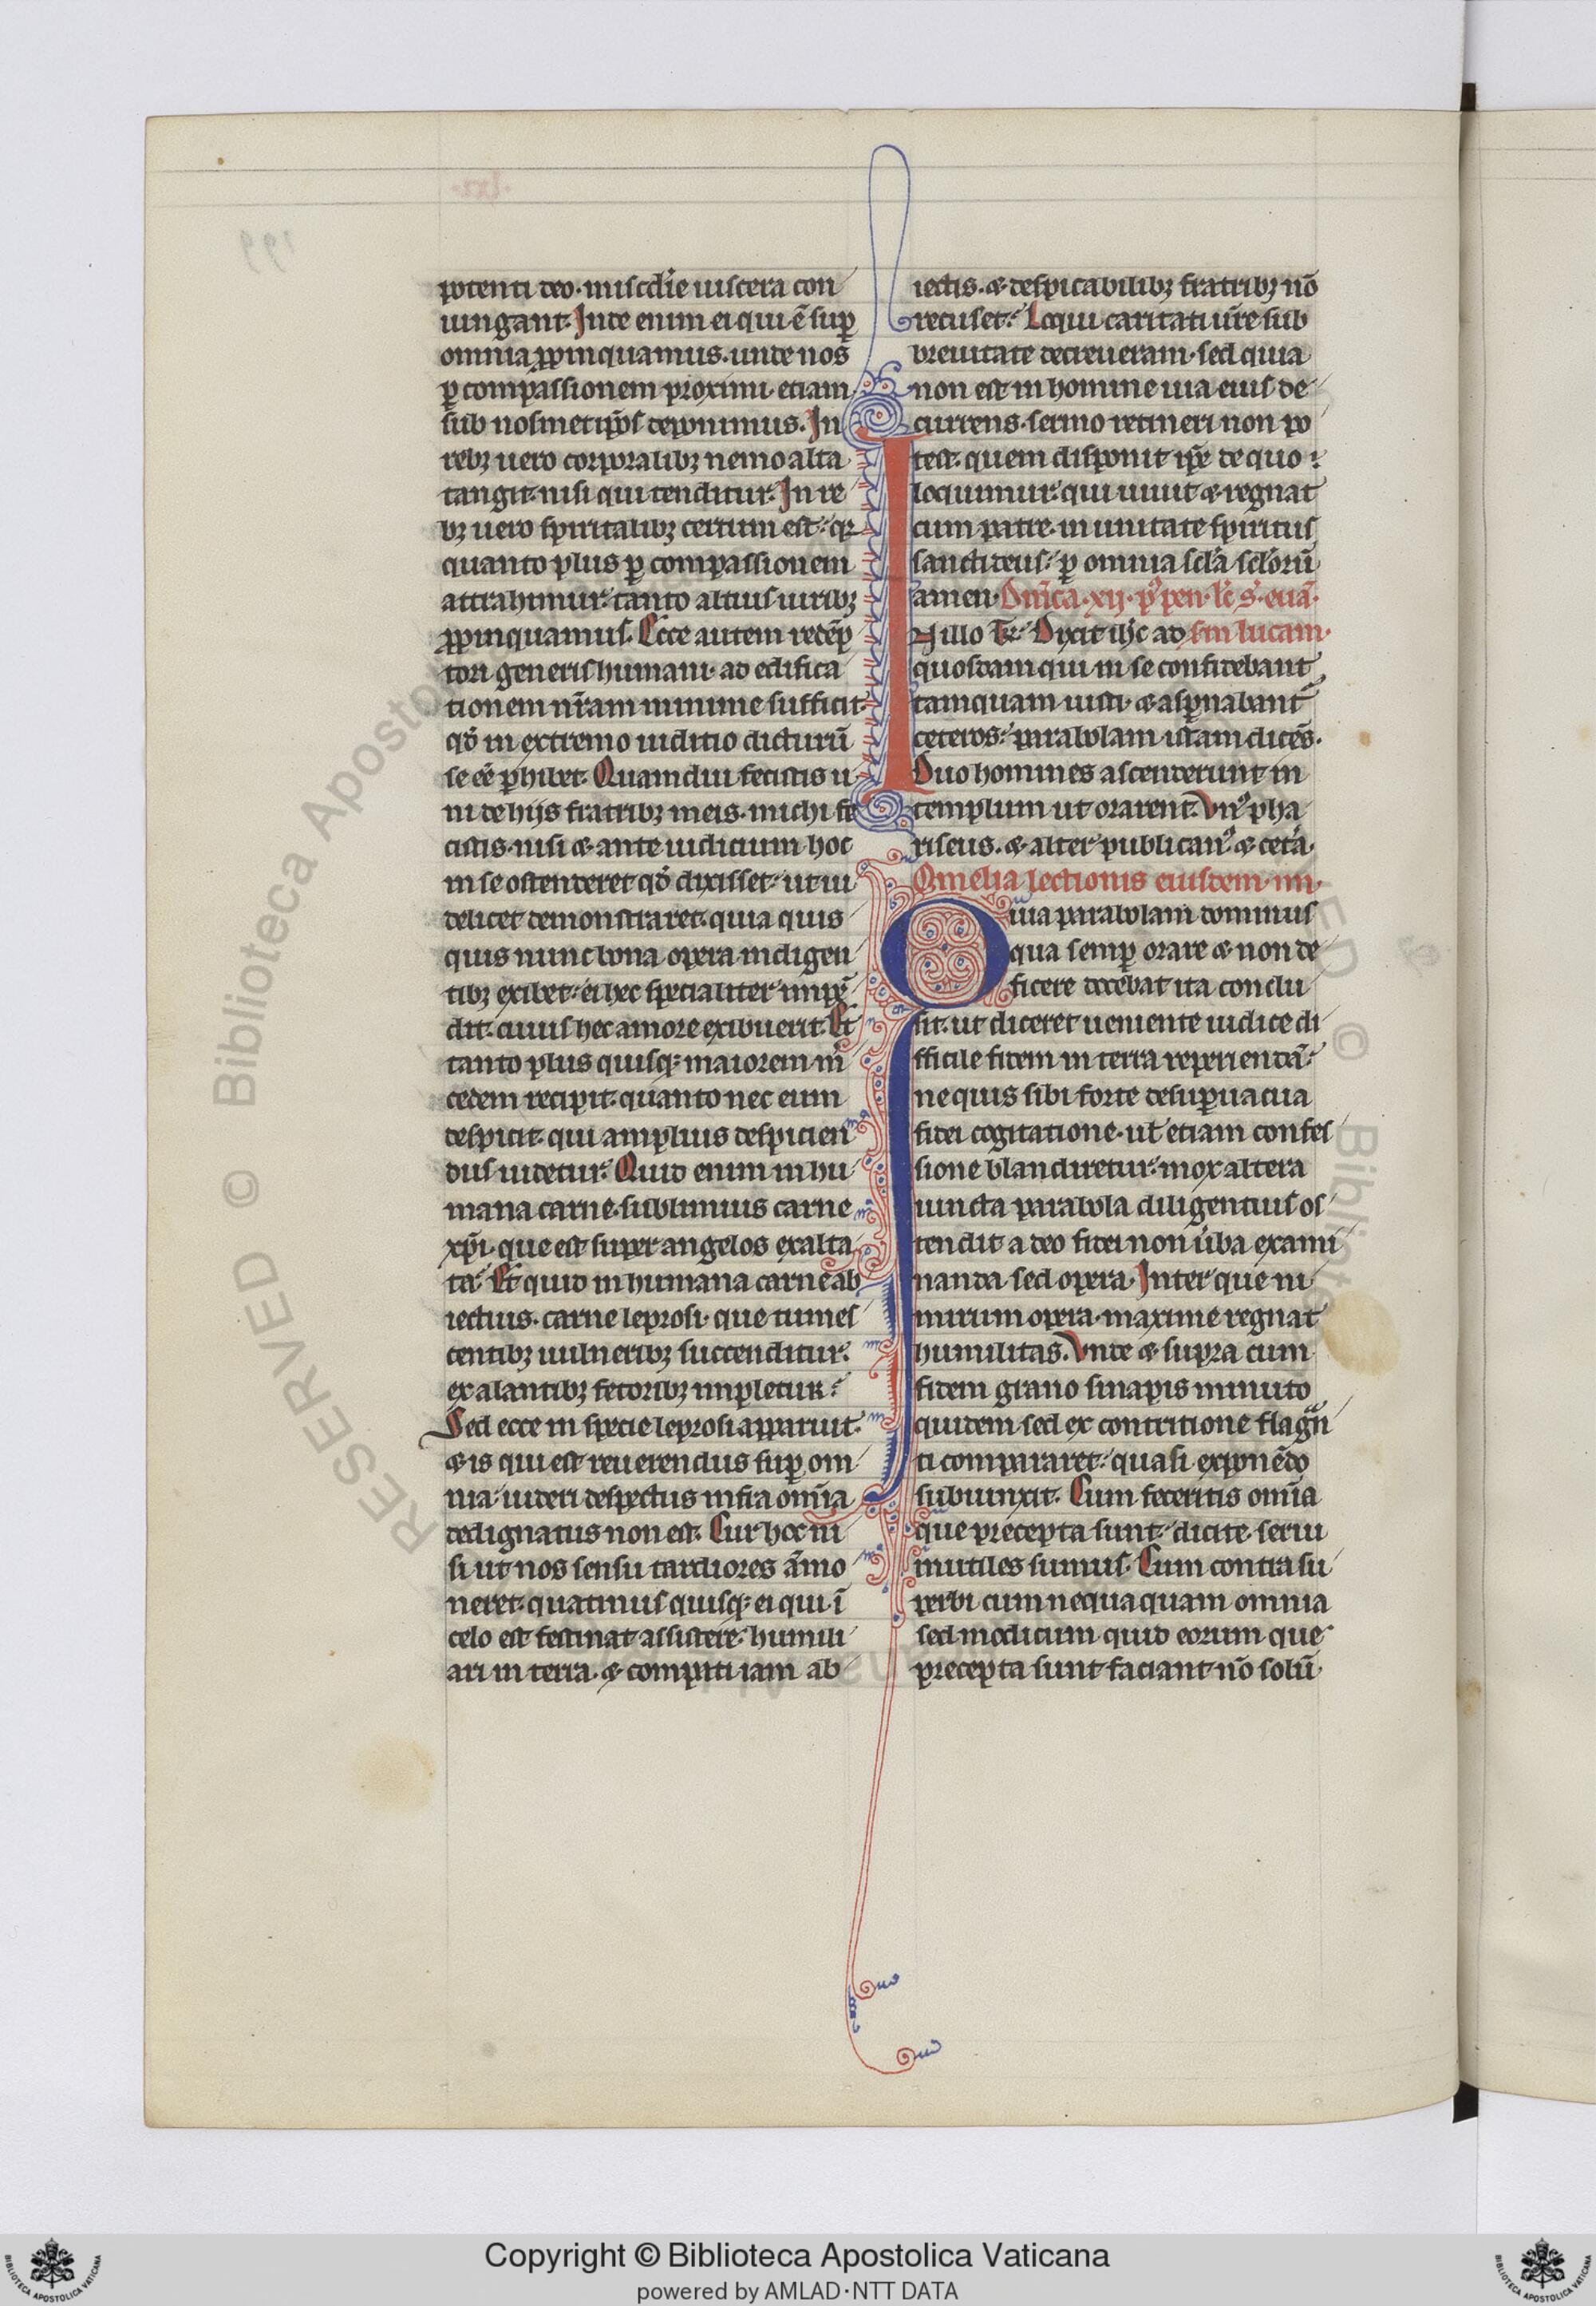 potenti deo. misc̄die uiscera con
iungant. Inde enim ei qui ē sup̱
omnia ꝓpinquamus. unde nos
ꝑ compassionem proximi etiam
sub nosmetip̄os deponimus. In
rebꝫ uero corporalibꝫ nemo alta
tangit. nisi qui tenditur. In re
bꝫ uero spiritalibꝫ certum est. qꝛ
quanto plus ꝑ compassionem
attrahimur. tanto altius uiribꝫ
ꝓpinquamus. Ecce autem redēp
tori generis humani. ad edifica
tionem nr̄am minime sufficit.
qđ in extremo iuditio dicturū
se eē ꝑhibet. Quamdiu fecistis u
ni de hijs fratribꝫ meis. michi fe
cistis. nisi ⁊ ante iudicium hoc
in se ostenderet qđ dixisset. ut ui
delicet demonstraret. quia quis
quis nunc bona opera indigen
tibꝫ exibet. ei hec specialiter inpē
dit. cuius hec amore exibuerit. Et
tanto plus quisqꝫ maiorem m̄
cedem recipit. quanto nec eum
despicit. qui amplius despicien
dus uidetur. Quid enim in hu
mana carne. sublimius carne
xp̄i. que est super angelos exalta
ta. Et quid in humana carne ab
iectius. carne leprosi. que tumes
centibꝫ uulneribꝫ succenditur.
exalantibꝫ fetoribꝫ impletur.
Sed ecce in specie leprosi apparuit.
⁊ is qui est reuerendus suꝑ om
nia. uideri despectus infra om̄ia
dedignatus non est. Cur hoc ni
si ut nos sensu tardiores āmo
neret. quatinus quisqꝫ ei qui ī
celo est festinat assistere. humili
ari in terra. ⁊ compati iam ab
iectis. ⁊ despicabilibꝫ fratribꝫ nō
recuset. Loqui caritati ur̄e sub
breuitate decreueram. sed quia
non est in homine uia eius de
currens. sermo retineri non po
test. quem disponit ip̄e de quo
loquimur. qui uiuit ⁊ regnat
cum patre. in unitate spiritus
sancti deus. ꝑ omnia scl̄a scl̄orū
amen. Dnīca. xij. p̄ pen. lc̄ s. euā.
In illo tꝛ̄. Dixit ih̄c ad sm̄ lucam.
quosdam qui in se confidebant
tamquam iusti. ⁊ asꝑnabant̄
ceteros. parabolam istam dicēs.
Duo homines ascenderunt in
templum ut orarent. Vnꝰ pha
riseus. ⁊ alter publicanꝰ ⁊ cetā.
Omelia lectionis eiusdem. m.
Quia parabolam dominus
qua semꝑ orare ⁊ non de
ficere docebat ita conclu
sit. ut diceret ueniente iudice di
fficile fidem in terra reperiendā.
ne quis sibi forte de suꝑuacua
fidei cogitatione. uƚ etiam confes
sione blandiretur. mox altera
iuncta parabola diligentius os
tendit a deo fidei non ūba exami
nanda sed opera. Inter que ni
mirum opera. maxime regnat
humilitas. Vnde ⁊ supra cum
fidem grano sinapis minuto
quidem. sed ex contritione flagrā
ti compararet. quasi exponēdo
subiunxit. Cum feceritis om̄ia
que precepta sunt. dicite. serui
inutiles sumus. Cum contra su
perbi cum nequaquam omnia
sed modicum quid eorum que
precepta sunt faciant nō solū
Copyright © Biblioteca Apostolica Vaticana
powered by AMLAD·NTT DATA